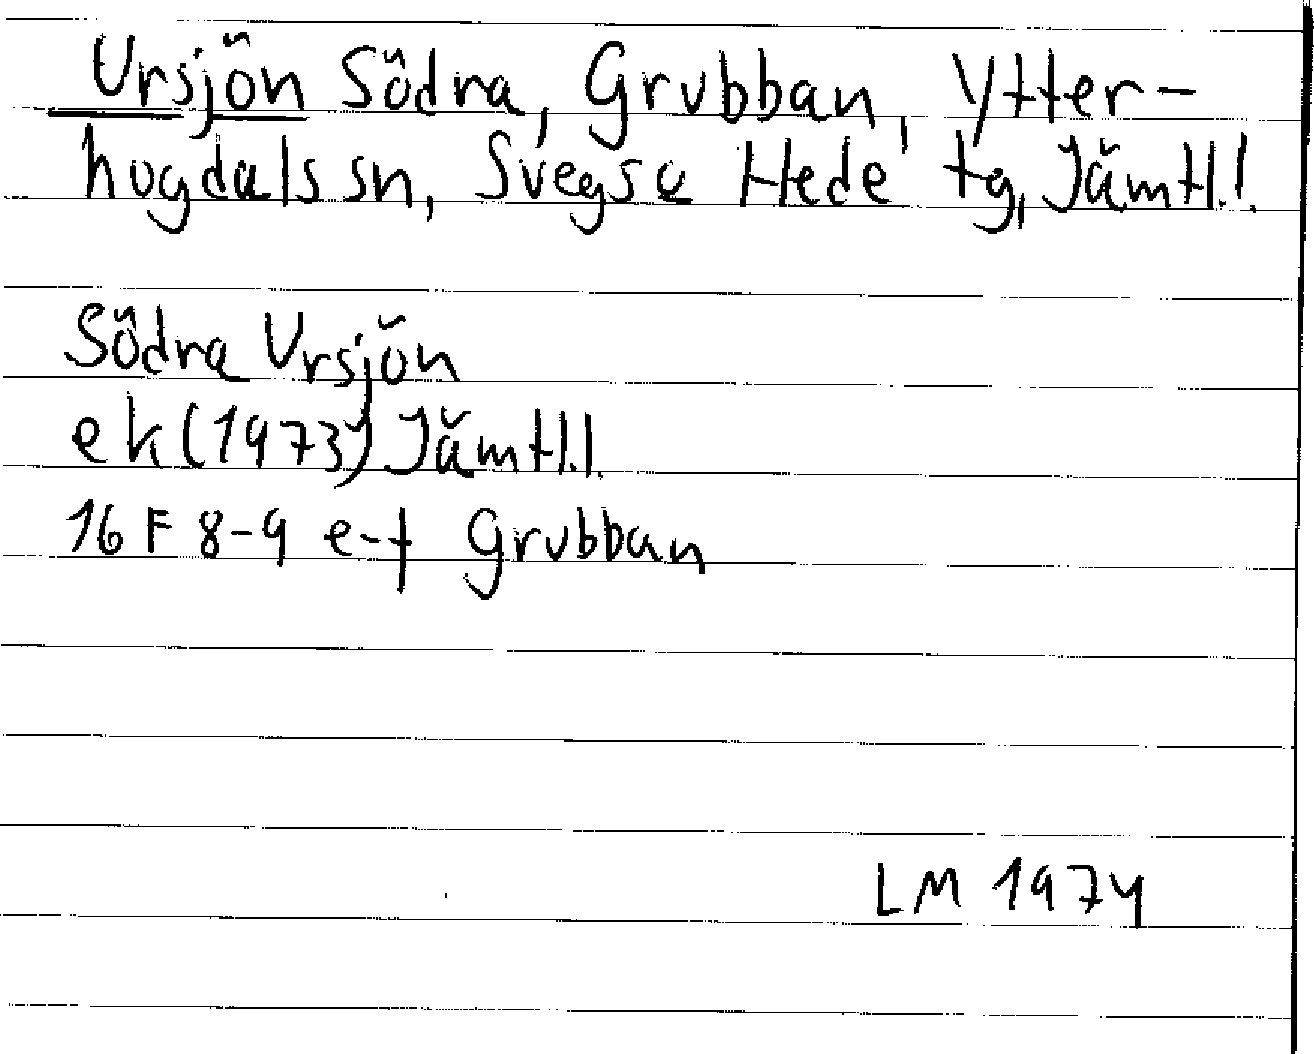 Ursjön Södra, Grubban, Ytter-
hogdals sn, Svegs o Hede tg, Jämtl.l.
Södra Ursjön
ek (1973) Jämtl.l.
16 F 8-9 e-f Grubban
LM 1974